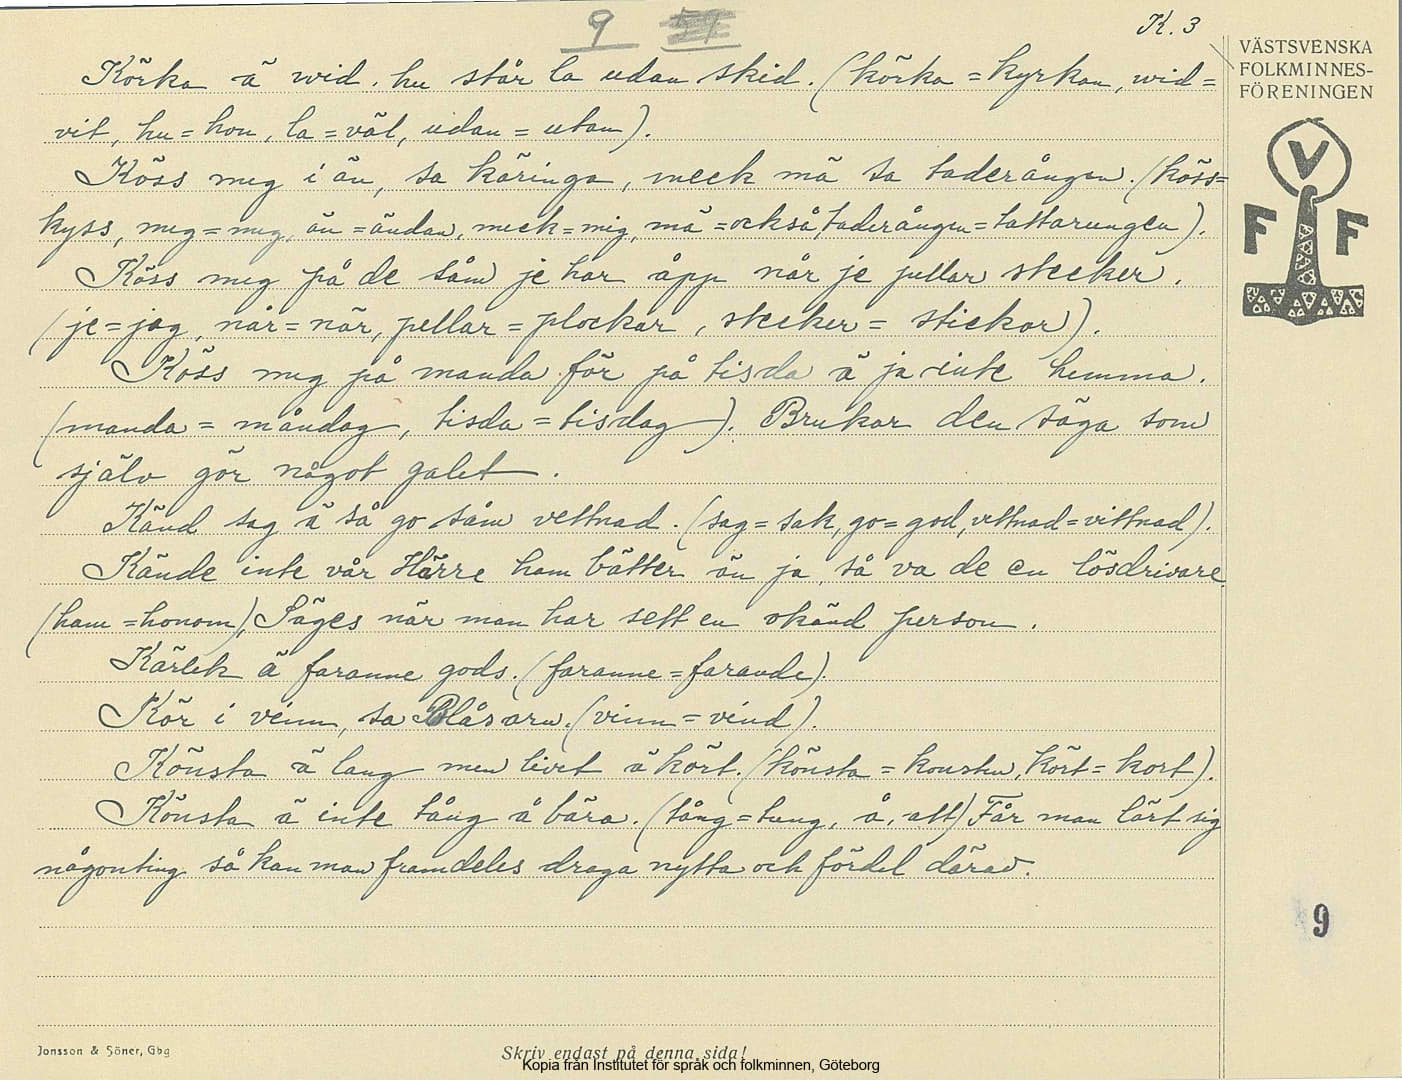 9 51
K. 3
VÄSTSVENSKA
FOLKMINNES-
FÖRENINGEN
V
F F
Körka ä wid, hu står la udan skid. (körka = kyrkan, wid =
vit, hu = hon, la = väl, udan = utan).
Köss meg i än, sa käringa, meck mä sa taderången. (köss =
kyss, meg = mig, än = ändan, meck = mig, mä = också, taderången = tattarungen).
Köss meg på de såm je har åpp når je pellar steeker.
(je = jag, når = när, pellar = plockar, steeker = stickor).
Köss meg på manda för på tisda ä ja inte hemma.
(manda = måndag, tisda = tisdag). Brukar den säga som
själv gör något galet.
Känd sag ä så go såm vettnad. (sag = sak, go = god, vettnad = vittnad).
Kände inte vår Härre ham bätter än ja, så va de en lösdrivare
(ham = honom), Säges när man har sett en okänd person.
Kärlek ä faranne gods. (faranne = farande).
Kör i vinn, sa Blåsarn. (vinn = vind).
Könsta ä lang men livet ä kört. (könsta = konsten, kört = kort).
Könsta ä inte tång å bära. (tång = tung, å, - att) Får man lärt sig
någonting så kan man framdeles draga nytta och fördel därav.
9
Jonsson & Söner, Gbg
Skriv endast på denna sida!
Kopia från Institutet för språk och folkminnen, Göteborg